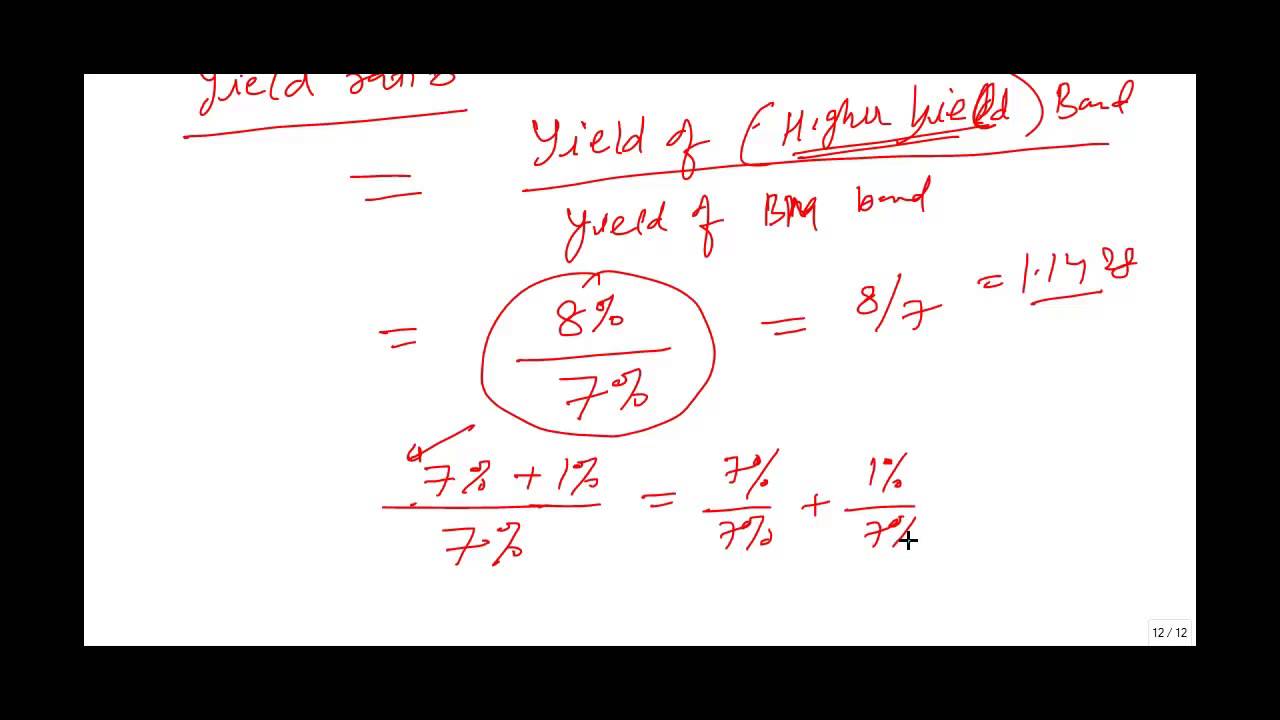 Yield ratio
= Yield of (Higher Yield) Bond
Yield of BMq bond
= 8% / 7% = 8/7 = 1.1428
7% + 1% / 7% = 7% / 7% + 1% / 7%
12 / 12